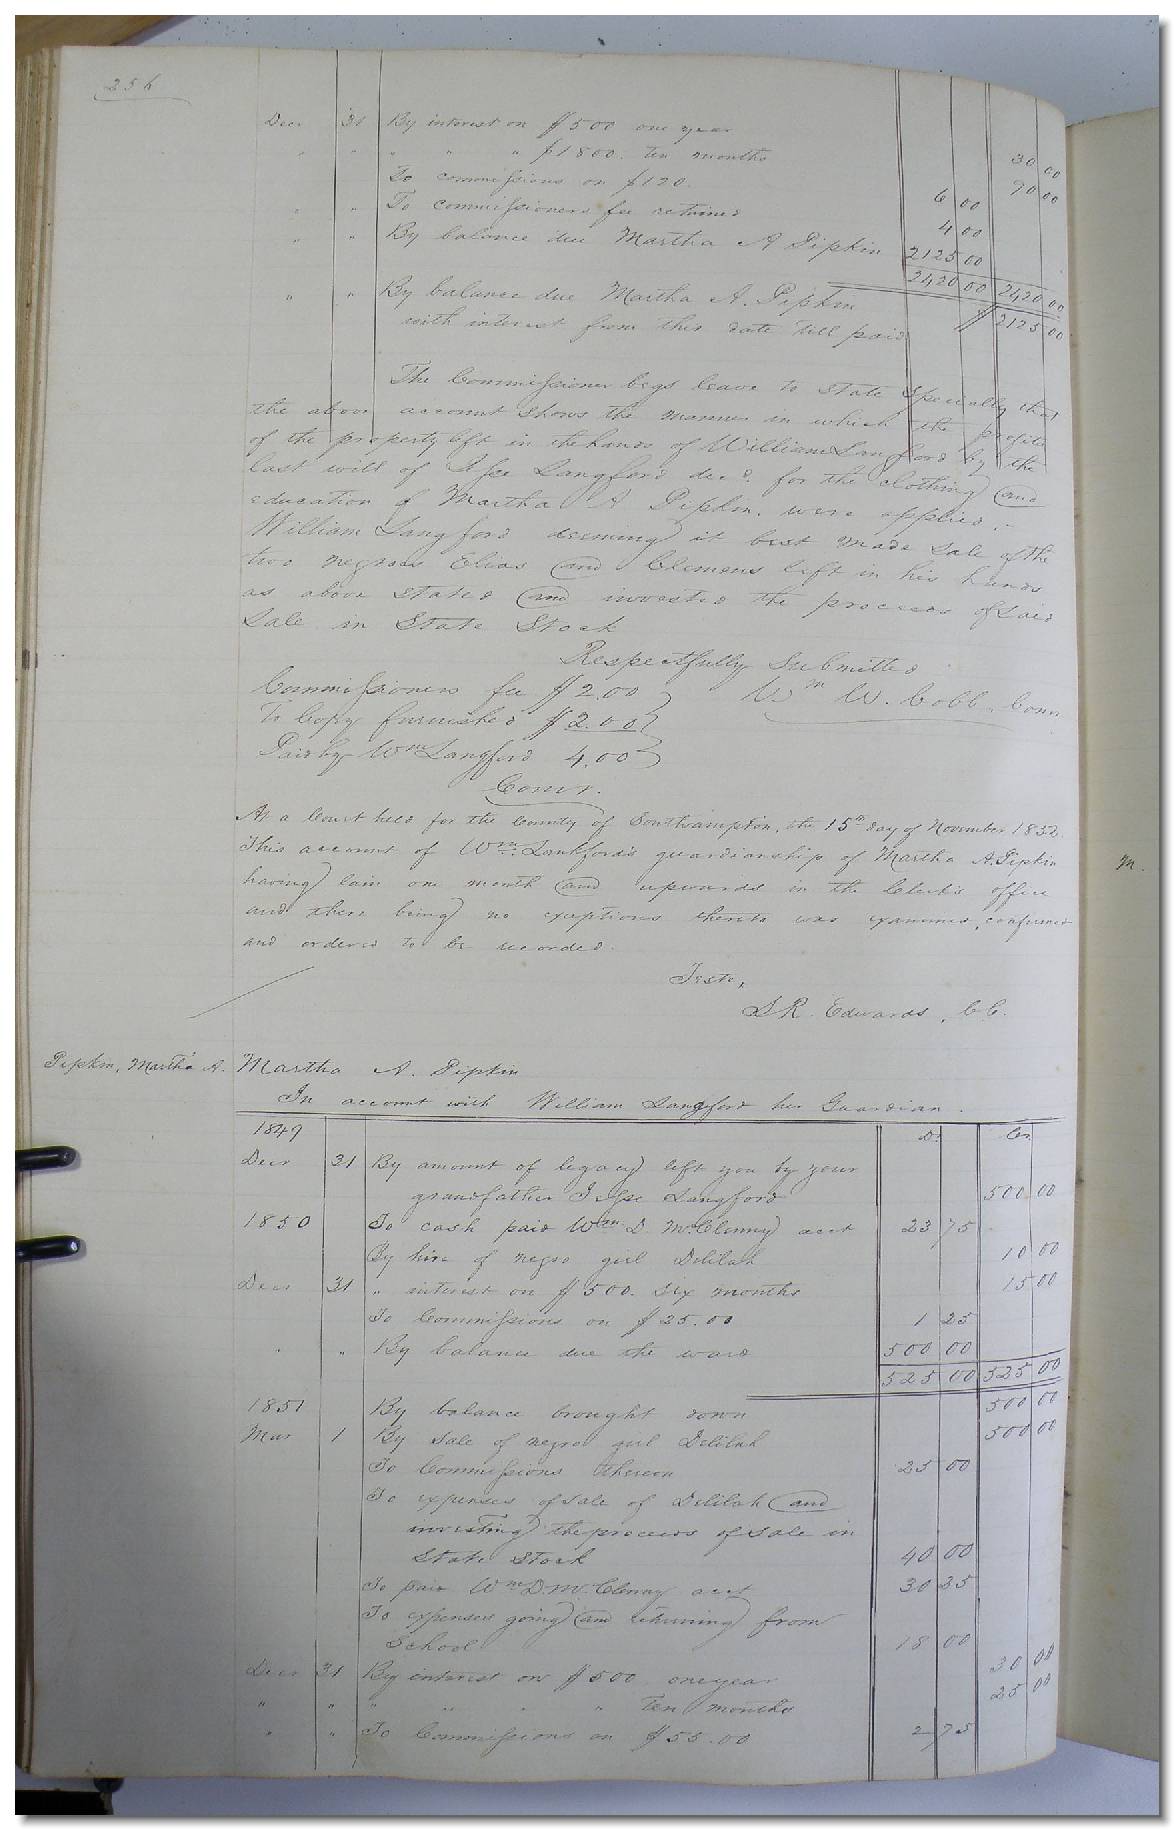 256
Decr 31 By interest on $500 one year 30 00
" " " " " $1800. ten months 90 00
To commissions on $120. 6 00
" " To commissioners fee returned 4 00
" " By balance due Martha A Pipkin 2125 00
2420 00 2420 00
" " By balance due Martha A. Pipkin
with interest from this date till paid $2125 00
The Commissioner begs leave to state specially that
the above account shows the manner in which the profits
of the property left in the hands of William Langford by the
last will of Jesse Langford decd. for the clothing and
education of Martha A Pipkin. were applied.–
William Langford deeming it best made sale of the
two negroes Elias and Clemens left in his hands
as above stated and invested the proceeds of said
sale in State Stock
Respectfully Submitted
Commissioners fee $2.00 Wm W. Cobb. Comr
To Copy furnished $2.00
Paid by Wm Langford 4.00
Comr.
At a Court held for the County of Southampton, the 15th day of November 1852.
This account of Wm. Lankford's guardianship of Martha A. Pipkin
having lain one month and upwards in the Clerk's office
and there being no exceptions thereto was examined, confirmed
and ordered to be recorded.
Teste,
L R. Edwards, C.C.
Pipkin, Martha A. Martha A. Pipkin
In account with William Langford her Guardian.
1849 Dr Cr
Decr 31 By amount of legacy left you by your
grandfather Jesse Langford 500 00
1850 To cash paid Wm. D McClenny acct 23 75
By hire of negro girl Delilah 10 00
Decr 31 " interest on $500. Six months 15 00
To Commissions on $25.00 1 25
" " By balance due the ward 500 00
525 00 525 00
1851 By balance brought down 500 00
Mar 1 By Sale of negro girl Delilah 500 00
To Commissions thereon 25 00
To expenses of sale of Delilah and
investing the proceeds of sale in
State Stock 40 00
To paid Wm D. McClenny acct 30 35
To expenses going and returning from
School 18 00
Decr 31 By interest on $500 one year 30 00
" " " " " " ten months 25 00
" " To Commissions on $55.00 2 75
M.